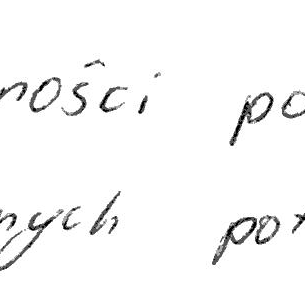 ności po
nych pot